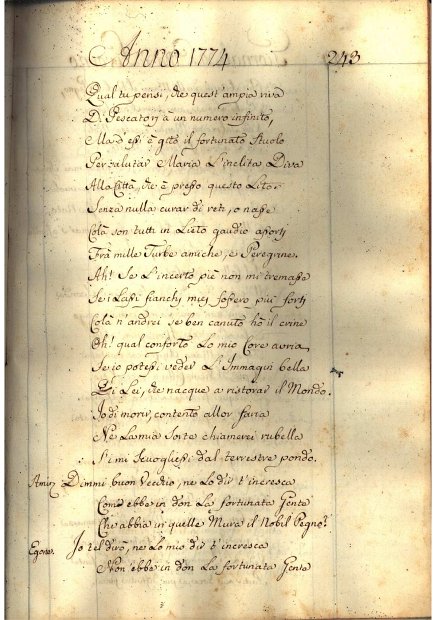 Anno 1774
243
Qual tu pensi, che quest' ampia riva
Di Pescatorj à un numero infinito,
Ma d' essi è gito il fortunato Stuolo
Per salutar Maria L'inclita Diva
Alla Città, che è presso questo Lito.
Senza nulla curar di reti, o nasse
Colà son tutti in Lieto gaudio assorti
Frà mille Turbe amiche, e Peregrine.
Ah! Se L'incerto piè non mi tremasse
Se i Lassi fianchi miej fossero più forti
Colà n'andrei se ben canuto hò il crine
Oh! qual conforto Lo mio Core avria
Se io potessi veder L'Immagin bella
Di Lei, che nacque a ristorar il Mondo.
Io di morir, contento allor saria
Ne La mia Sorte chiamerei rubella
S'i mi sciogliessi dal terrestre pondo.
Dimmi buon Vecchio, ne Lo dir t'incresca
Com' ebbe in don La fortunata Gente
Che abbia in quelle Mura il Nobil Pegno?
Egone. Io tel dirò, ne Lo mio dir t'incresca
Non ebbe in don La fortunata Gente